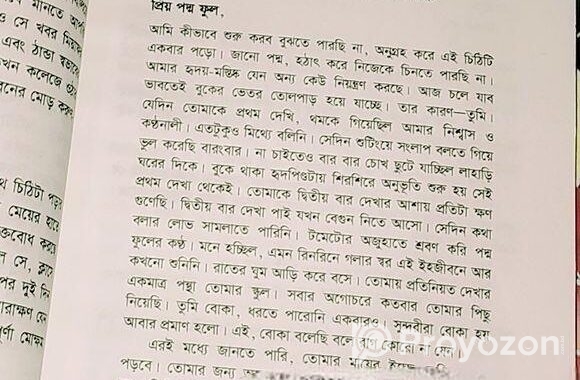 মানতে আপ
প্রিয় পদ্ম ফুল,
ও সে খবর মিয়া
আমি কীভাবে শুরু করব বুঝতে পারছি না, অনুগ্রহ করে এই চিঠিটি
এবং ঠান্ডা স্বভাবে
একবার পড়ো। জানো পদ্ম, হঠাৎ করে নিজেকে চিনতে পারছি না।
খন কলেজে
আমার হৃদয়-মস্তিষ্ক যেন অন্য কেউ নিয়ন্ত্রণ করছে। আজ চলে যাব
নের মোড়
ভাবতেই বুকের ভেতর তোলপাড় হয়ে যাচ্ছে। তার কারণ—তুমি।
যেদিন তোমাকে প্রথম দেখি, থমকে গিয়েছিল আমার নিশ্বাস ও
কণ্ঠনালী। এতটুকুও মিথ্যে বলিনি। সেদিন শুটিংয়ে সংলাপ বলতে গিয়ে
ভুল করেছি বারংবার। না চাইতেও বার বার চোখ ছুটে যাচ্ছিল লাহাড়ি
চিঠিটা পড়
ঘরের দিকে। বুকে থাকা হৃদপিণ্ডটায় শিরশিরে অনুভূতি শুরু হয় সেই
মেয়ের হাতে
প্রথম দেখা থেকেই। তোমাকে দ্বিতীয় বার দেখার আশায় প্রতিটা ক্ষণ
বোধ করছে
গুণেছি। দ্বিতীয় বার দেখা পাই যখন বেগুন নিতে আসো। সেদিন কথা
সে,
বলার লোভ সামলাতে পারিনি। টমেটোর অজুহাতে শ্রবণ করি পদ্ম
পর দুই দিন
ফুলের কণ্ঠ। মনে হচ্ছিল, এমন রিনরিনে গলার স্বর এই ইহজীবনে আর
রাক্ষণ যেন
কখনো শুনিনি। রাতের ঘুম আড়ি করে বসে। তোমায় প্রতিনিয়ত দেখার
একমাত্র পন্থা তোমার স্কুল। সবার অগোচরে কতবার তোমার পিছু
নিয়েছি। তুমি বোকা, ধরতে পারোনি একবারও। সুন্দরীরা বোকা হয়
আবার প্রমাণ হলো। এই, বোকা বলেছি বলে রাগ করো না যেন।
এরই মধ্যে জানতে পারি, তোমার মায়ের
পড়বে। তোমার জন্য
Proyozon